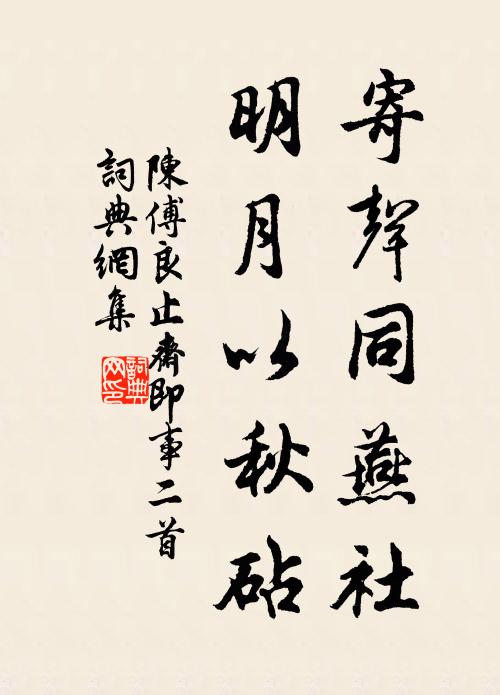 寄聲同燕社
明月以秋砧
陳傅良止齋即事二首
詞典網集
詞典网印